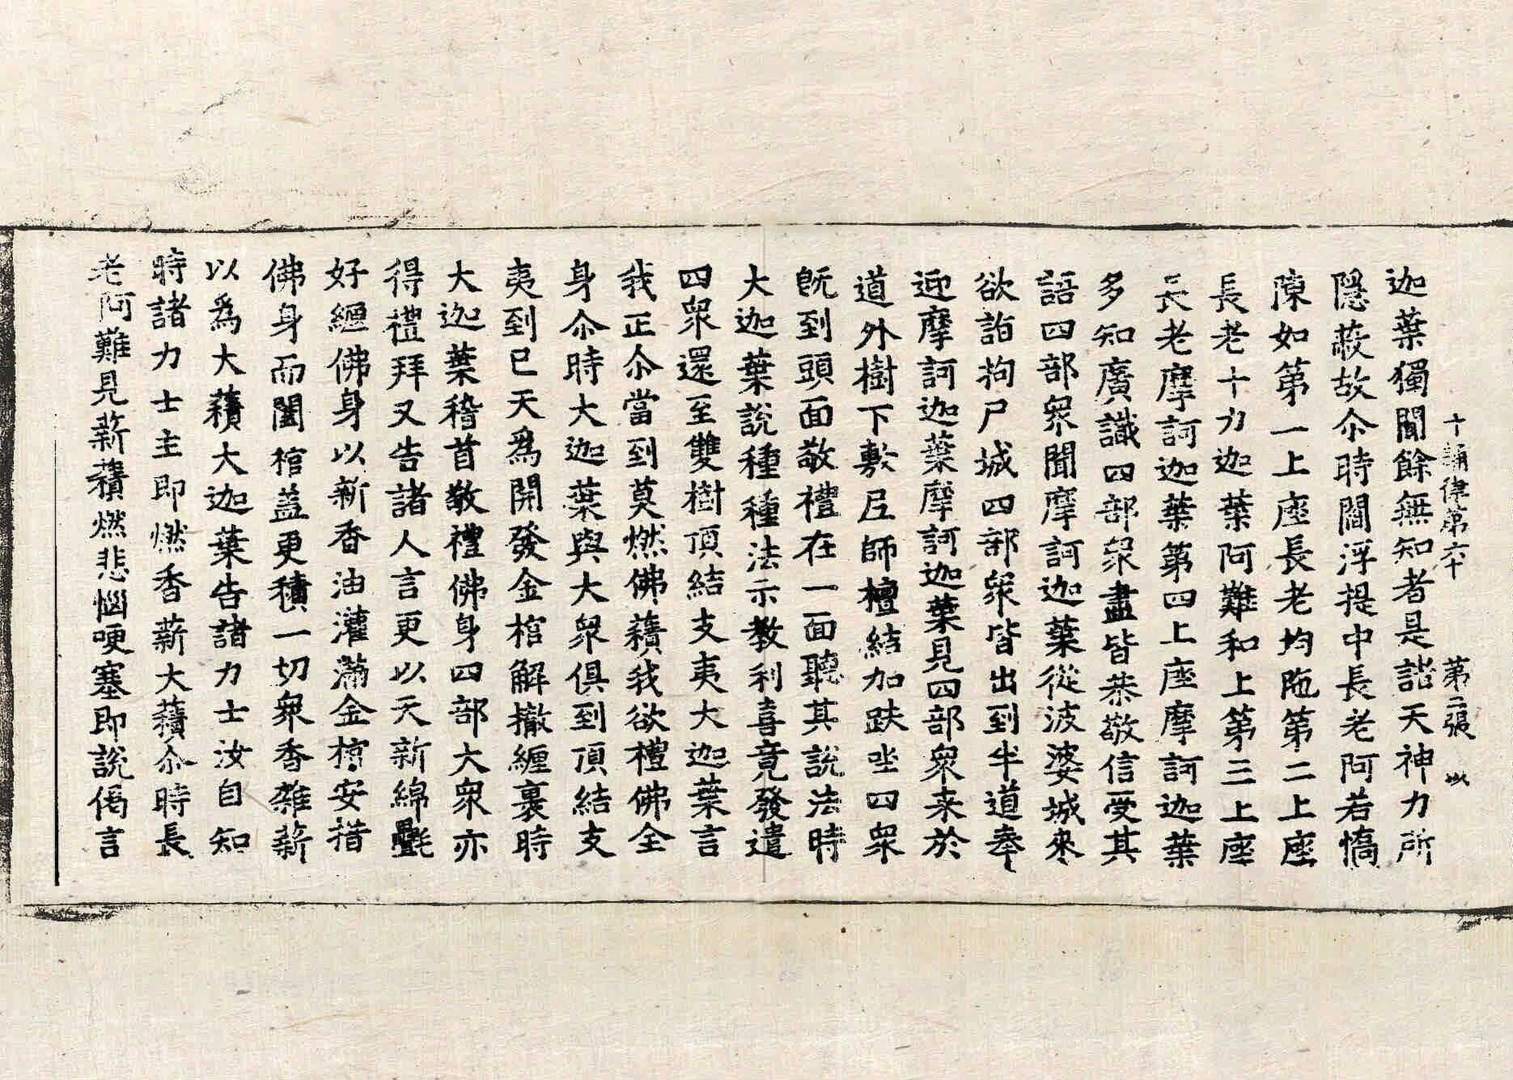 迦葉獨聞餘無知者是諸天神力所
十誦律第六十　第二張　以
隱蔽故尒時閻浮提中長老阿若憍
陳如第一上座長老均陁第二上座
長老十力迦葉阿難和上第三上座
長老摩訶迦葉第四上座摩訶迦葉
多知廣識四部衆盡皆恭敬信受其
語四部衆聞摩訶迦葉從波婆城來
欲詣拘尸城四部衆皆出到半道奉
迎摩訶迦葉摩訶迦葉見四部衆来於
道外樹下敷尼師檀結加趺坐四衆
旣到頭面敬禮在一面聽其說法時
大迦葉說種種法示教利喜竟發遣
四衆還至雙樹頂結支夷大迦葉言
我正尒當到莫燃佛䕹我欲禮佛全
身尒時大迦葉與大衆俱到頂結支
夷到已天爲開發金棺解撤纏裹時
大迦葉稽首敬禮佛身四部大衆亦
得禮拜又告諸人言更以天新綿㲲
好纏佛身以新香油灌滿金棺安措
佛身而闔棺蓋更積一切衆香雜薪
以爲大䕹大迦葉告諸力士汝自知
時諸力士主即燃香薪大䕹尒時長
老阿難見薪䕹燃悲惱哽塞即說偈言